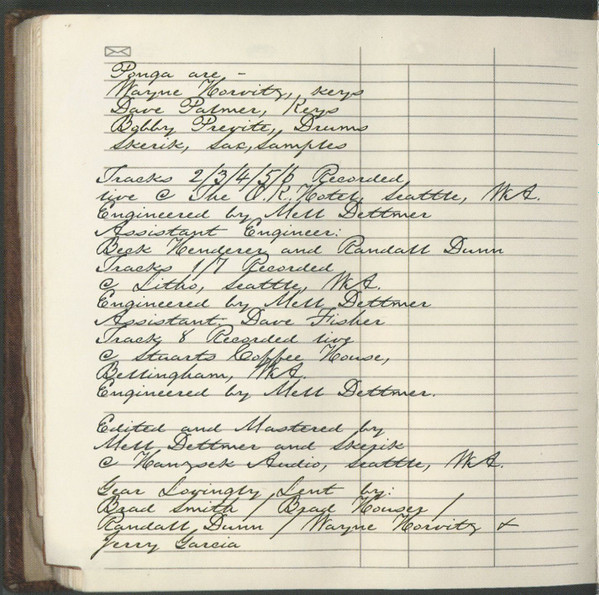 Ponga are -
Wayne Horvitz, keys
Dave Palmer, Keys
Bobby Previte, Drums
Skerik, Sax, Samples
Tracks 2/3/4/5/6 Recorded
live @ The O.K. Hotel, Seattle, WA.
Engineered by Mell Dettmer
Assistant Engineer:
Beck Henderer and Randall Dunn
Tracks 1/7 Recorded
@ Litho, Seattle, WA.
Engineered by Mell Dettmer
Assistant: Dave Fisher
Track 8 Recorded live
@ Stuarts Coffee House,
Bellingham, WA.
Engineered by Mell Dettmer.
Edited and Mastered by
Mell Dettmer and Skerik
@ Hanzsek Audio, Seattle, WA.
Gear Lovingly Lent by:
Brad Smith / Brad Houser /
Randall Dunn / Wayne Horvitz &
Jerry Garcia